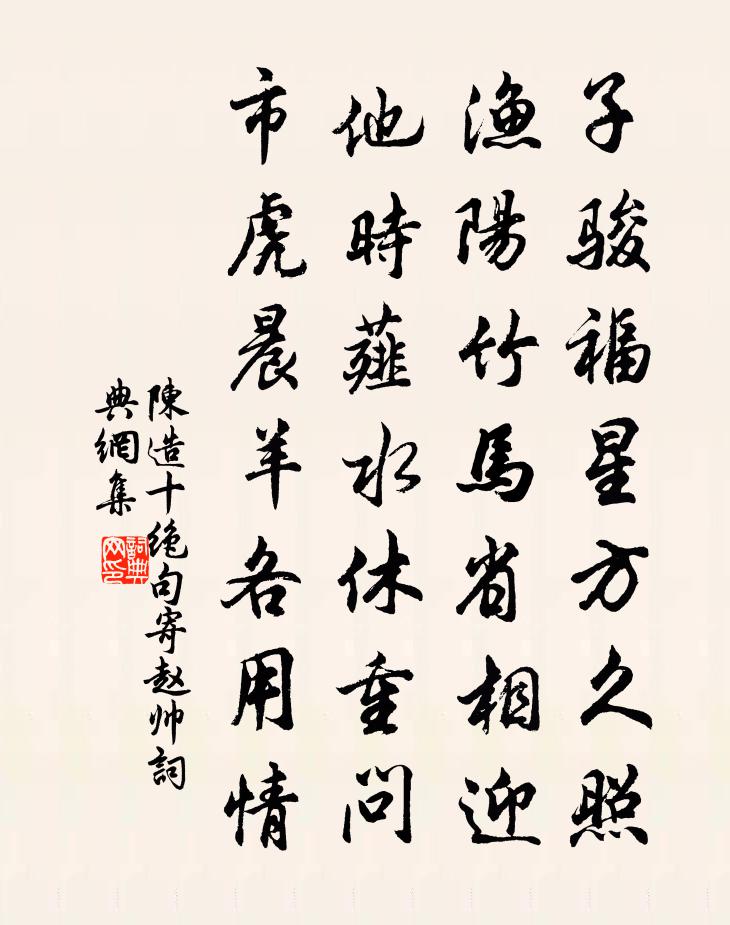 子駿福星方久照
漁陽竹馬省相迎
他時薤水休重問
市虎晨羊各用情
陳造十绝句寄赵帅詞
典網集
詞典
网印